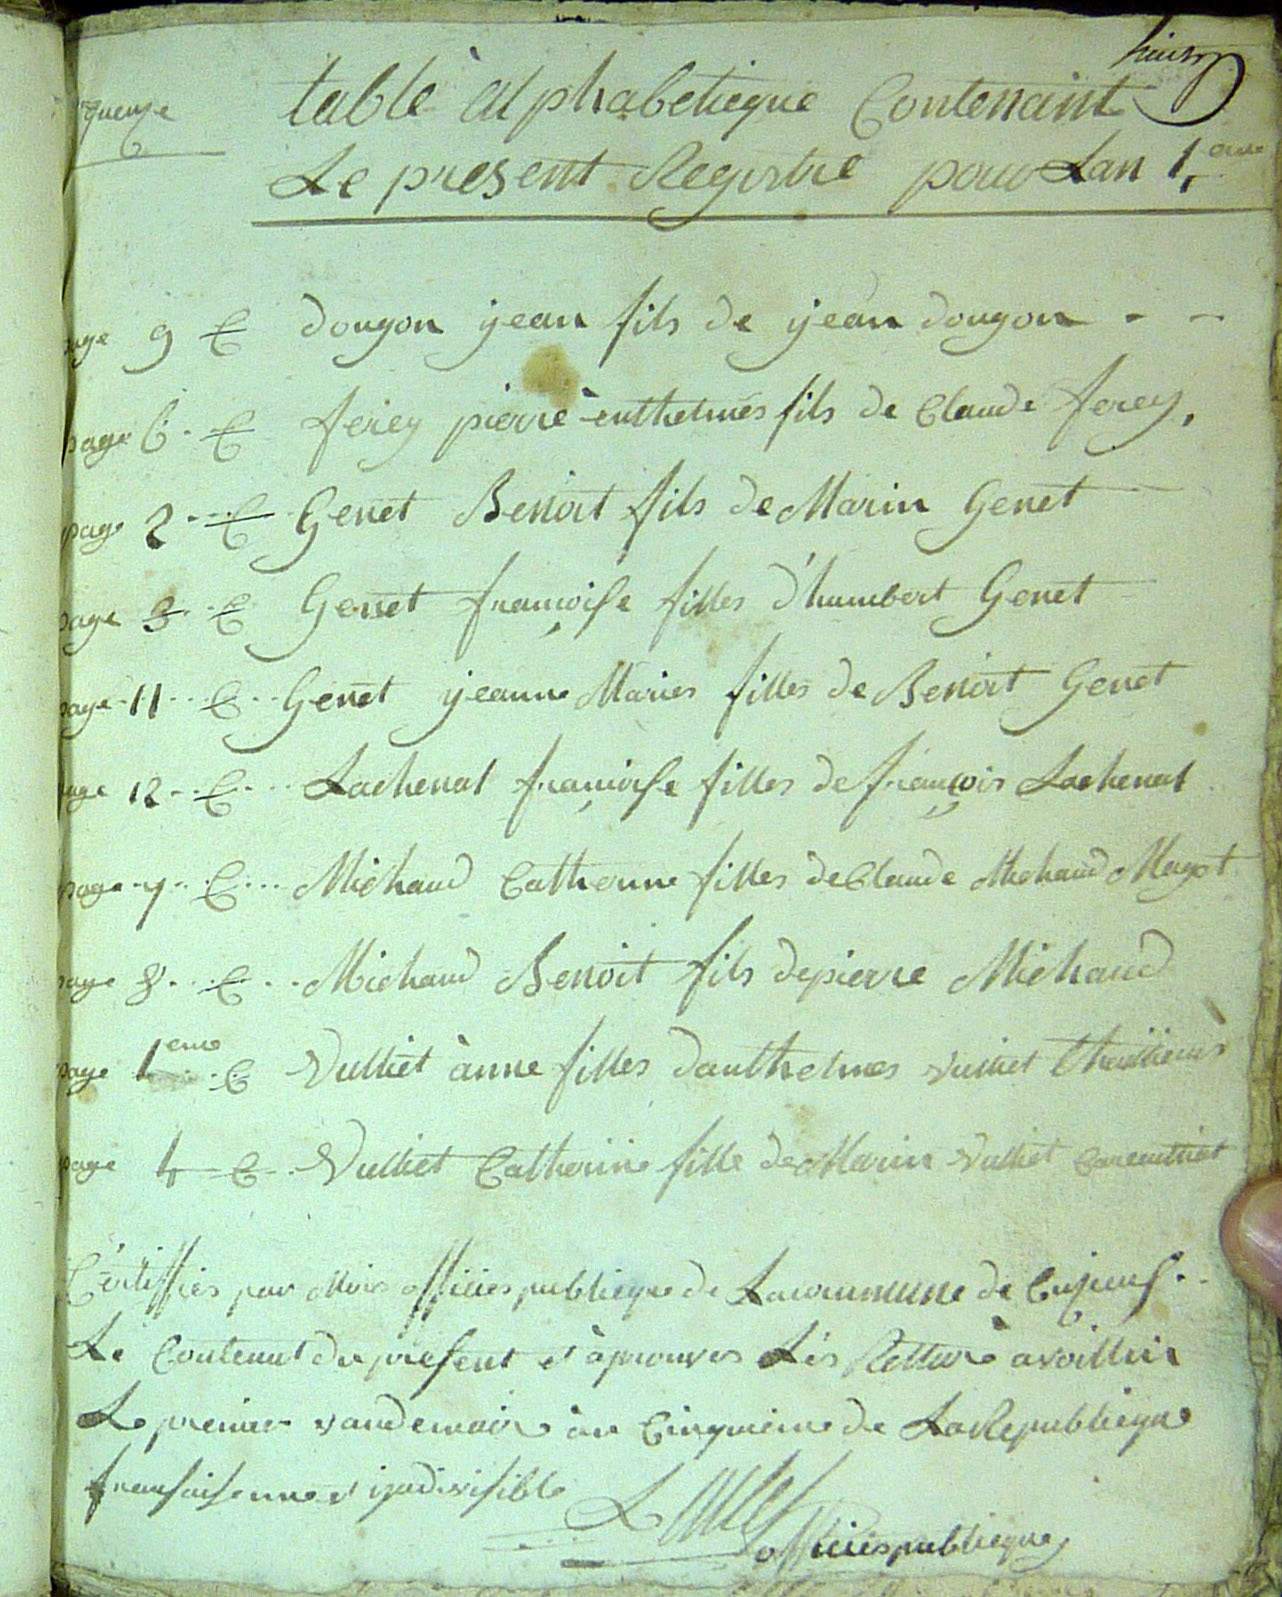 huit
table àlphabetieque Contenant
Le present Registre pour Lan 4,eme
page 9 C dougon yean fils de yean dougon - -
page 6 - C ferey pierre enthelmes fils de Claude ferey,
page 2 - C Genet Benoit fils de Marin Genet
page 3 - C Genet françoise filles d'humbert Genet
page 11 - C - Genet yeanne Maries filles de Benoit Genet
page 12 - C - Lachenal françoise filles de françois Lachenal
page 7 - C - Michaud Catherine filles de Claude Michaud
page 8 - C - Michaud Benoit fils de pierre Michaud
page 1eme - C Vulliet ànne filles danthelmes vulliet
page 4 C Vulliet Catherine fille de Marin Vulliet
Certiffiés par Mois officies publieque de Lacommune de
Le Contenut du present et àprouves Les
Le premier vandemaire àn Cinquieme de La Republieque
fransaise unne et indivisible
officies publieque